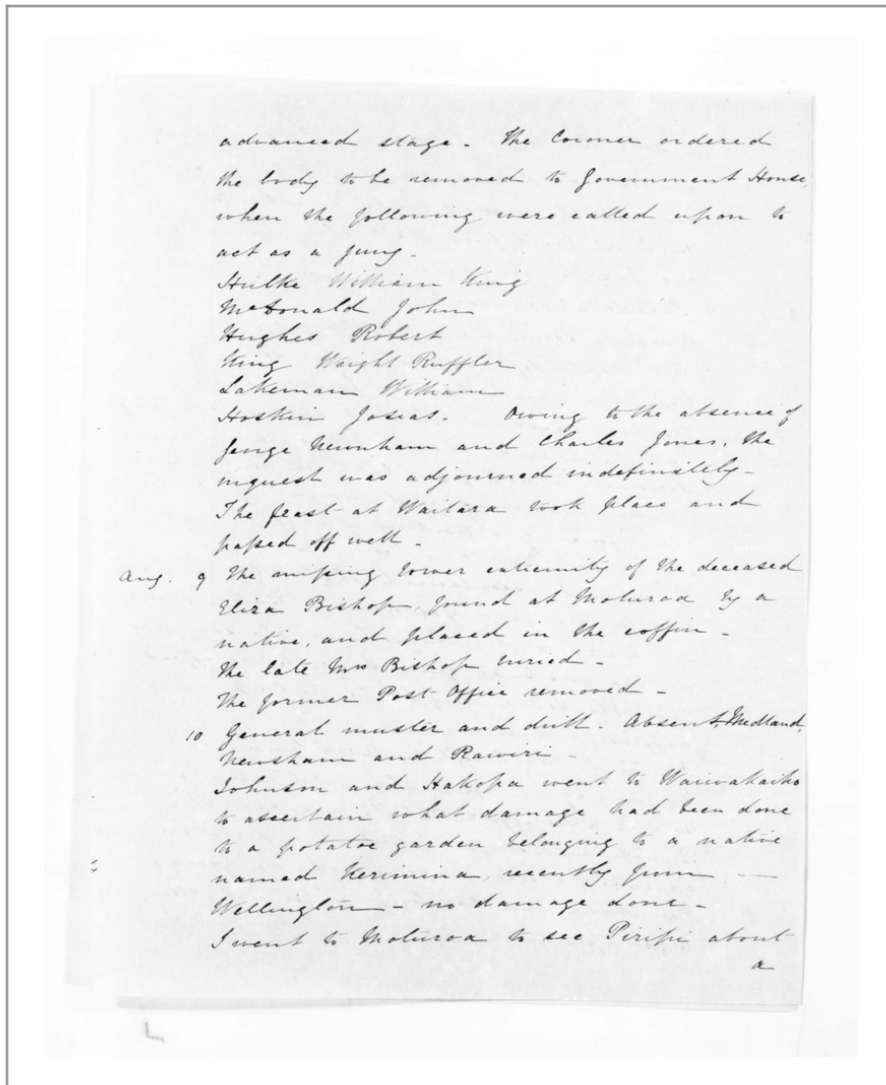 advanced stage. The Coroner ordered
the body to be removed to Government House,
when the following were called upon to
act as a jury.
Hulke William King
McDonald John
Hughes Robert
King Weight Ruffler
Lakeman William
Hoskin Josias. Owing to the absence of
George Newsham and Charles Jones, the
inquest was adjourned indefinitely.
The feast at Waitara took place and
passed off well.
Aug. 9 The missing lower extremity of the deceased
Eliza Bishop, found at Moturoa by a
native, and placed in the coffin.
The late Mrs Bishop buried.
The former Post Office removed.
10 General muster and drill. Absent, Medland,
Newsham and Rawiri.
Johnson and Hakopa went to Waiwakaiho
to ascertain what damage had been done
to a potatoe garden belonging to a native
named Kerimina, recently from
Wellington - no damage done.
I went to Moturoa to see Piripi about
a